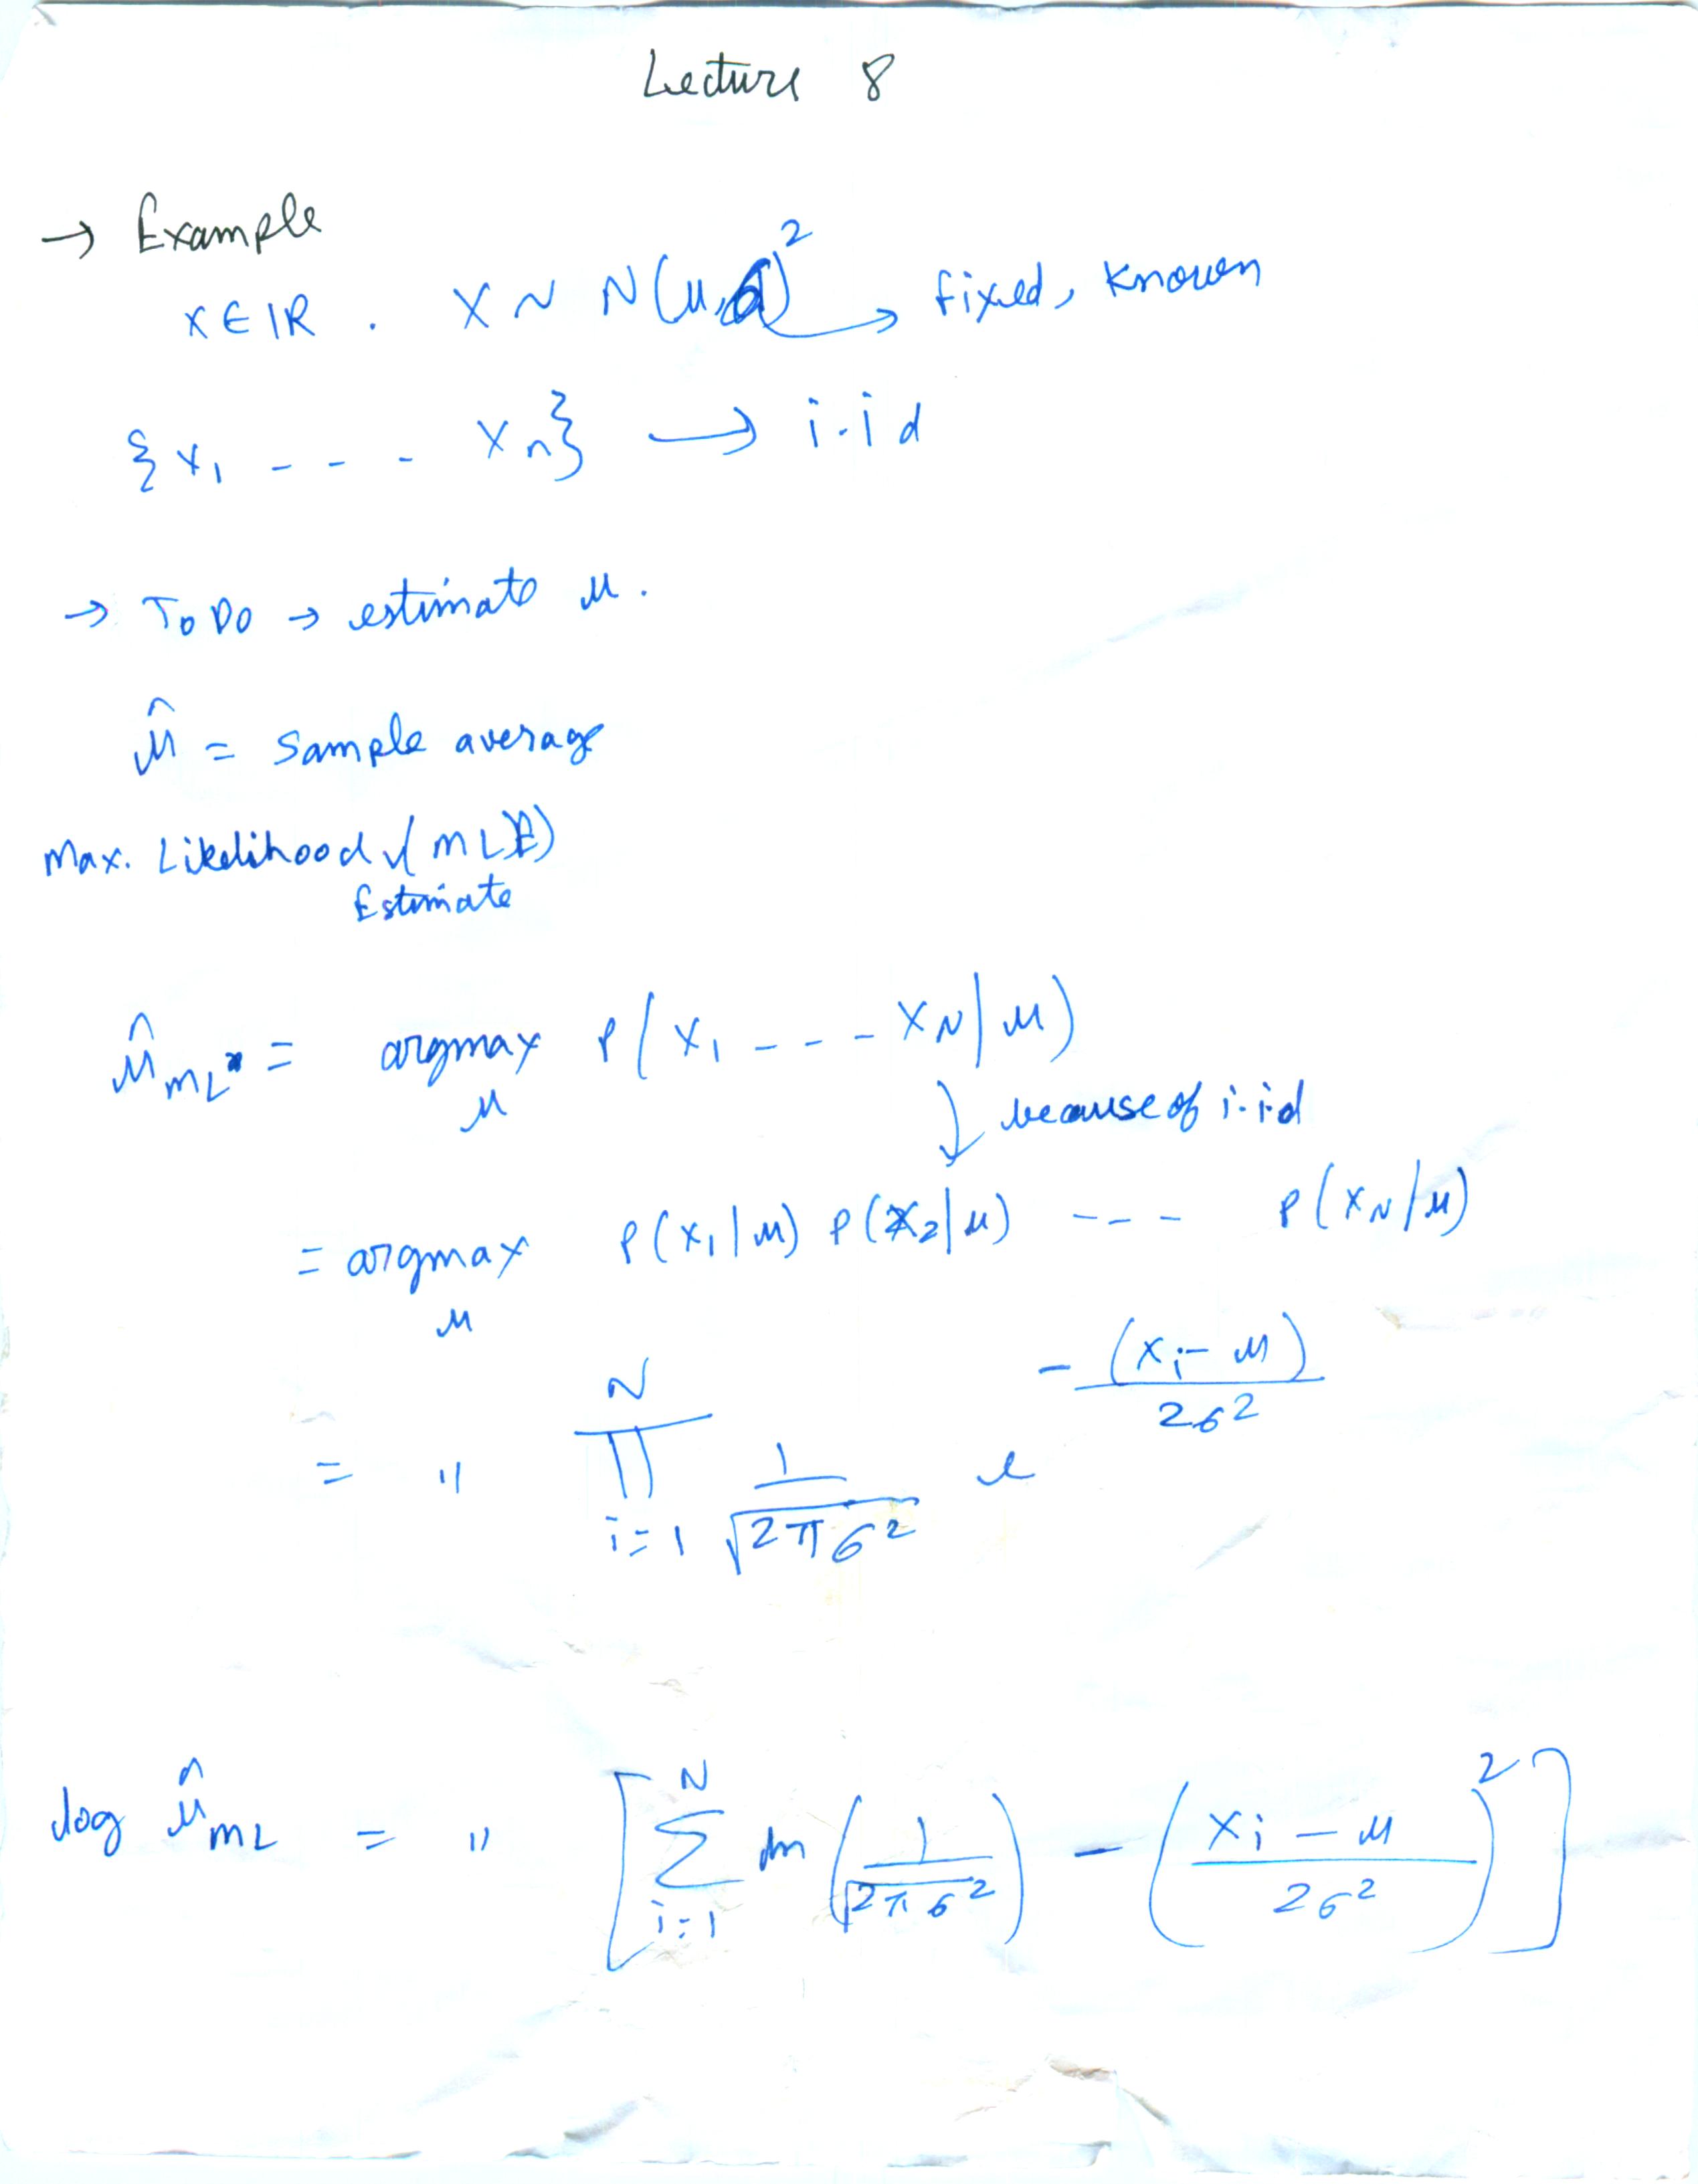 Lecture 8
→ Example
X ∈ IR . X ~ N(μ,σ)² → fixed, known
{x₁ - - - Xn} → i.i d
→ To DO → estimate μ.
μ̂ = sample average
Max. Likelihood (MLE)
Estimate
μ̂_ML = argmax_μ P(x₁ - - - X_N | μ)
↓ because of i.i.d
= argmax_μ P(x₁|μ) P(x₂|μ) - - - P(x_N|μ)
= " ∏_{i=1}^{N} 1/√(2πσ²) e^{-(x_i - μ)/2σ²}
log μ̂_ML = " [ ∑_{i=1}^{N} ln (1/√(2πσ²)) - ((x_i - μ)/2σ²)² ]